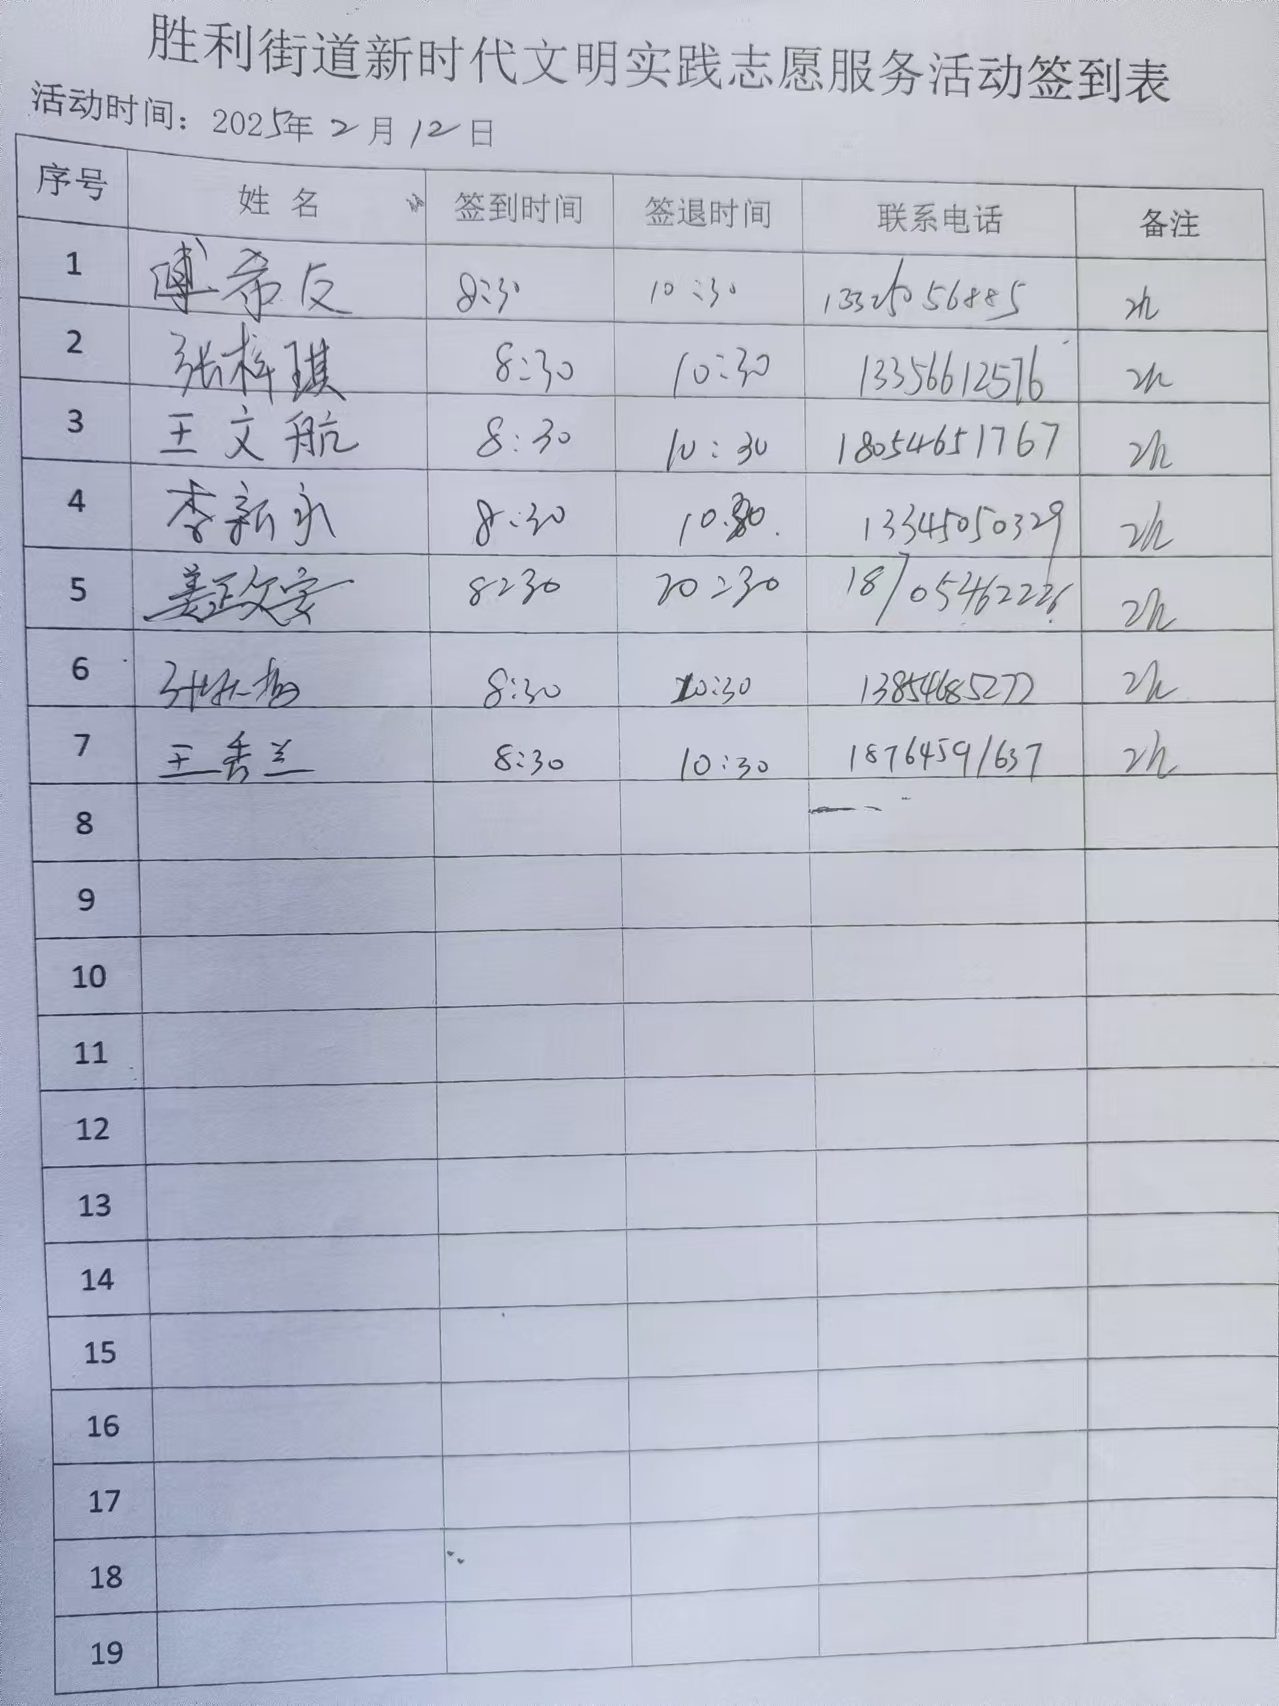 胜利街道新时代文明实践志愿服务活动签到表
活动时间：2025年 2 月 12 日
序号 姓 名 签到时间 签退时间 联系电话 备注
1 傅希友 8:30 10:30 2h
2 张梓琪 8:30 10:30 13356612576 2h
3 王文航 8:30 10:30 18054651767 2h
4 李新永 8:30 10:30 13345050329 2h
5 8:30 2h
6 8:30 10:30 13854685272 2h
7 王秀兰 8:30 10:30 18764591637 2h
8
9
10
11
12
13
14
15
16
17
18
19